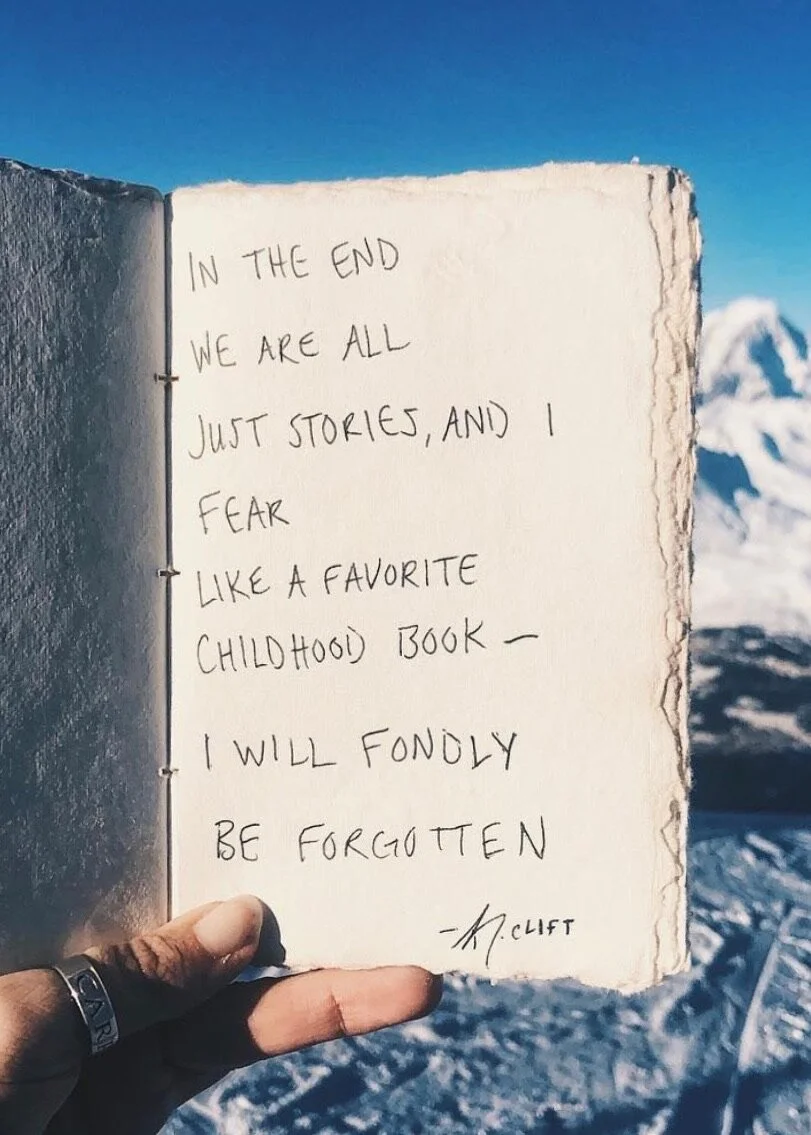 IN THE END
WE ARE ALL
JUST STORIES, AND I
FEAR
LIKE A FAVORITE
CHILDHOOD BOOK —
I WILL FONDLY
BE FORGOTTEN
CLIFT
CAR